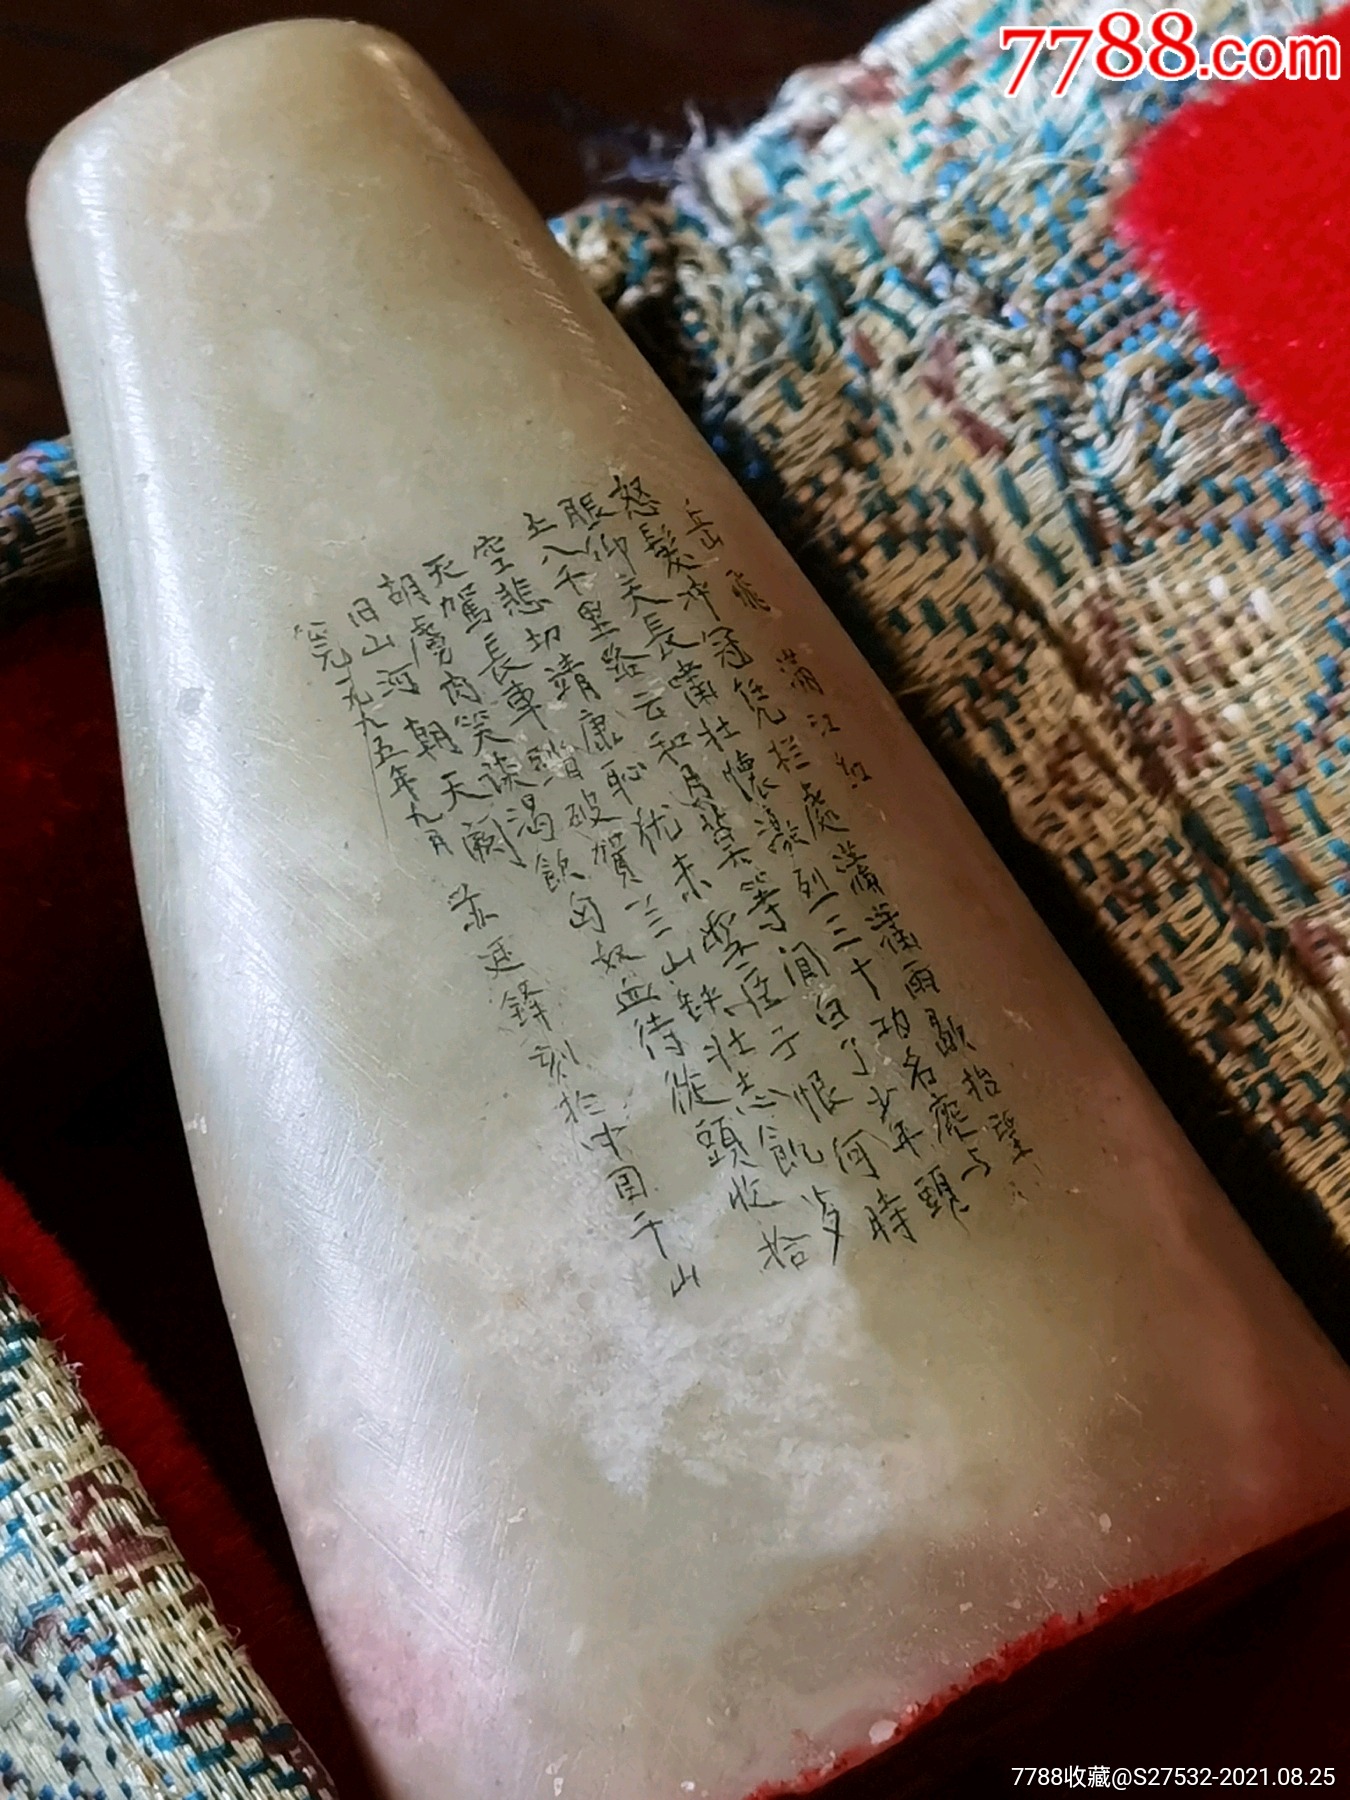 7788.com
岳飛 滿江红
怒髮冲冠凭栏處潇潇雨歇抬望
眼仰天長嘯壮懷激列三十功名塵与
土八千里路云和月莫等閒白了少年頭
空悲切靖康恥犹未雪臣子恨何時
灭駕長車踏破賀兰山缺壮志飢歺
胡虜肉笑谈渴飲匈奴血待從頭收拾
旧山河朝天阙
公元一九九五年九月 苏廷鋒刻於中国千山
7788收藏@S27532-2021.08.25